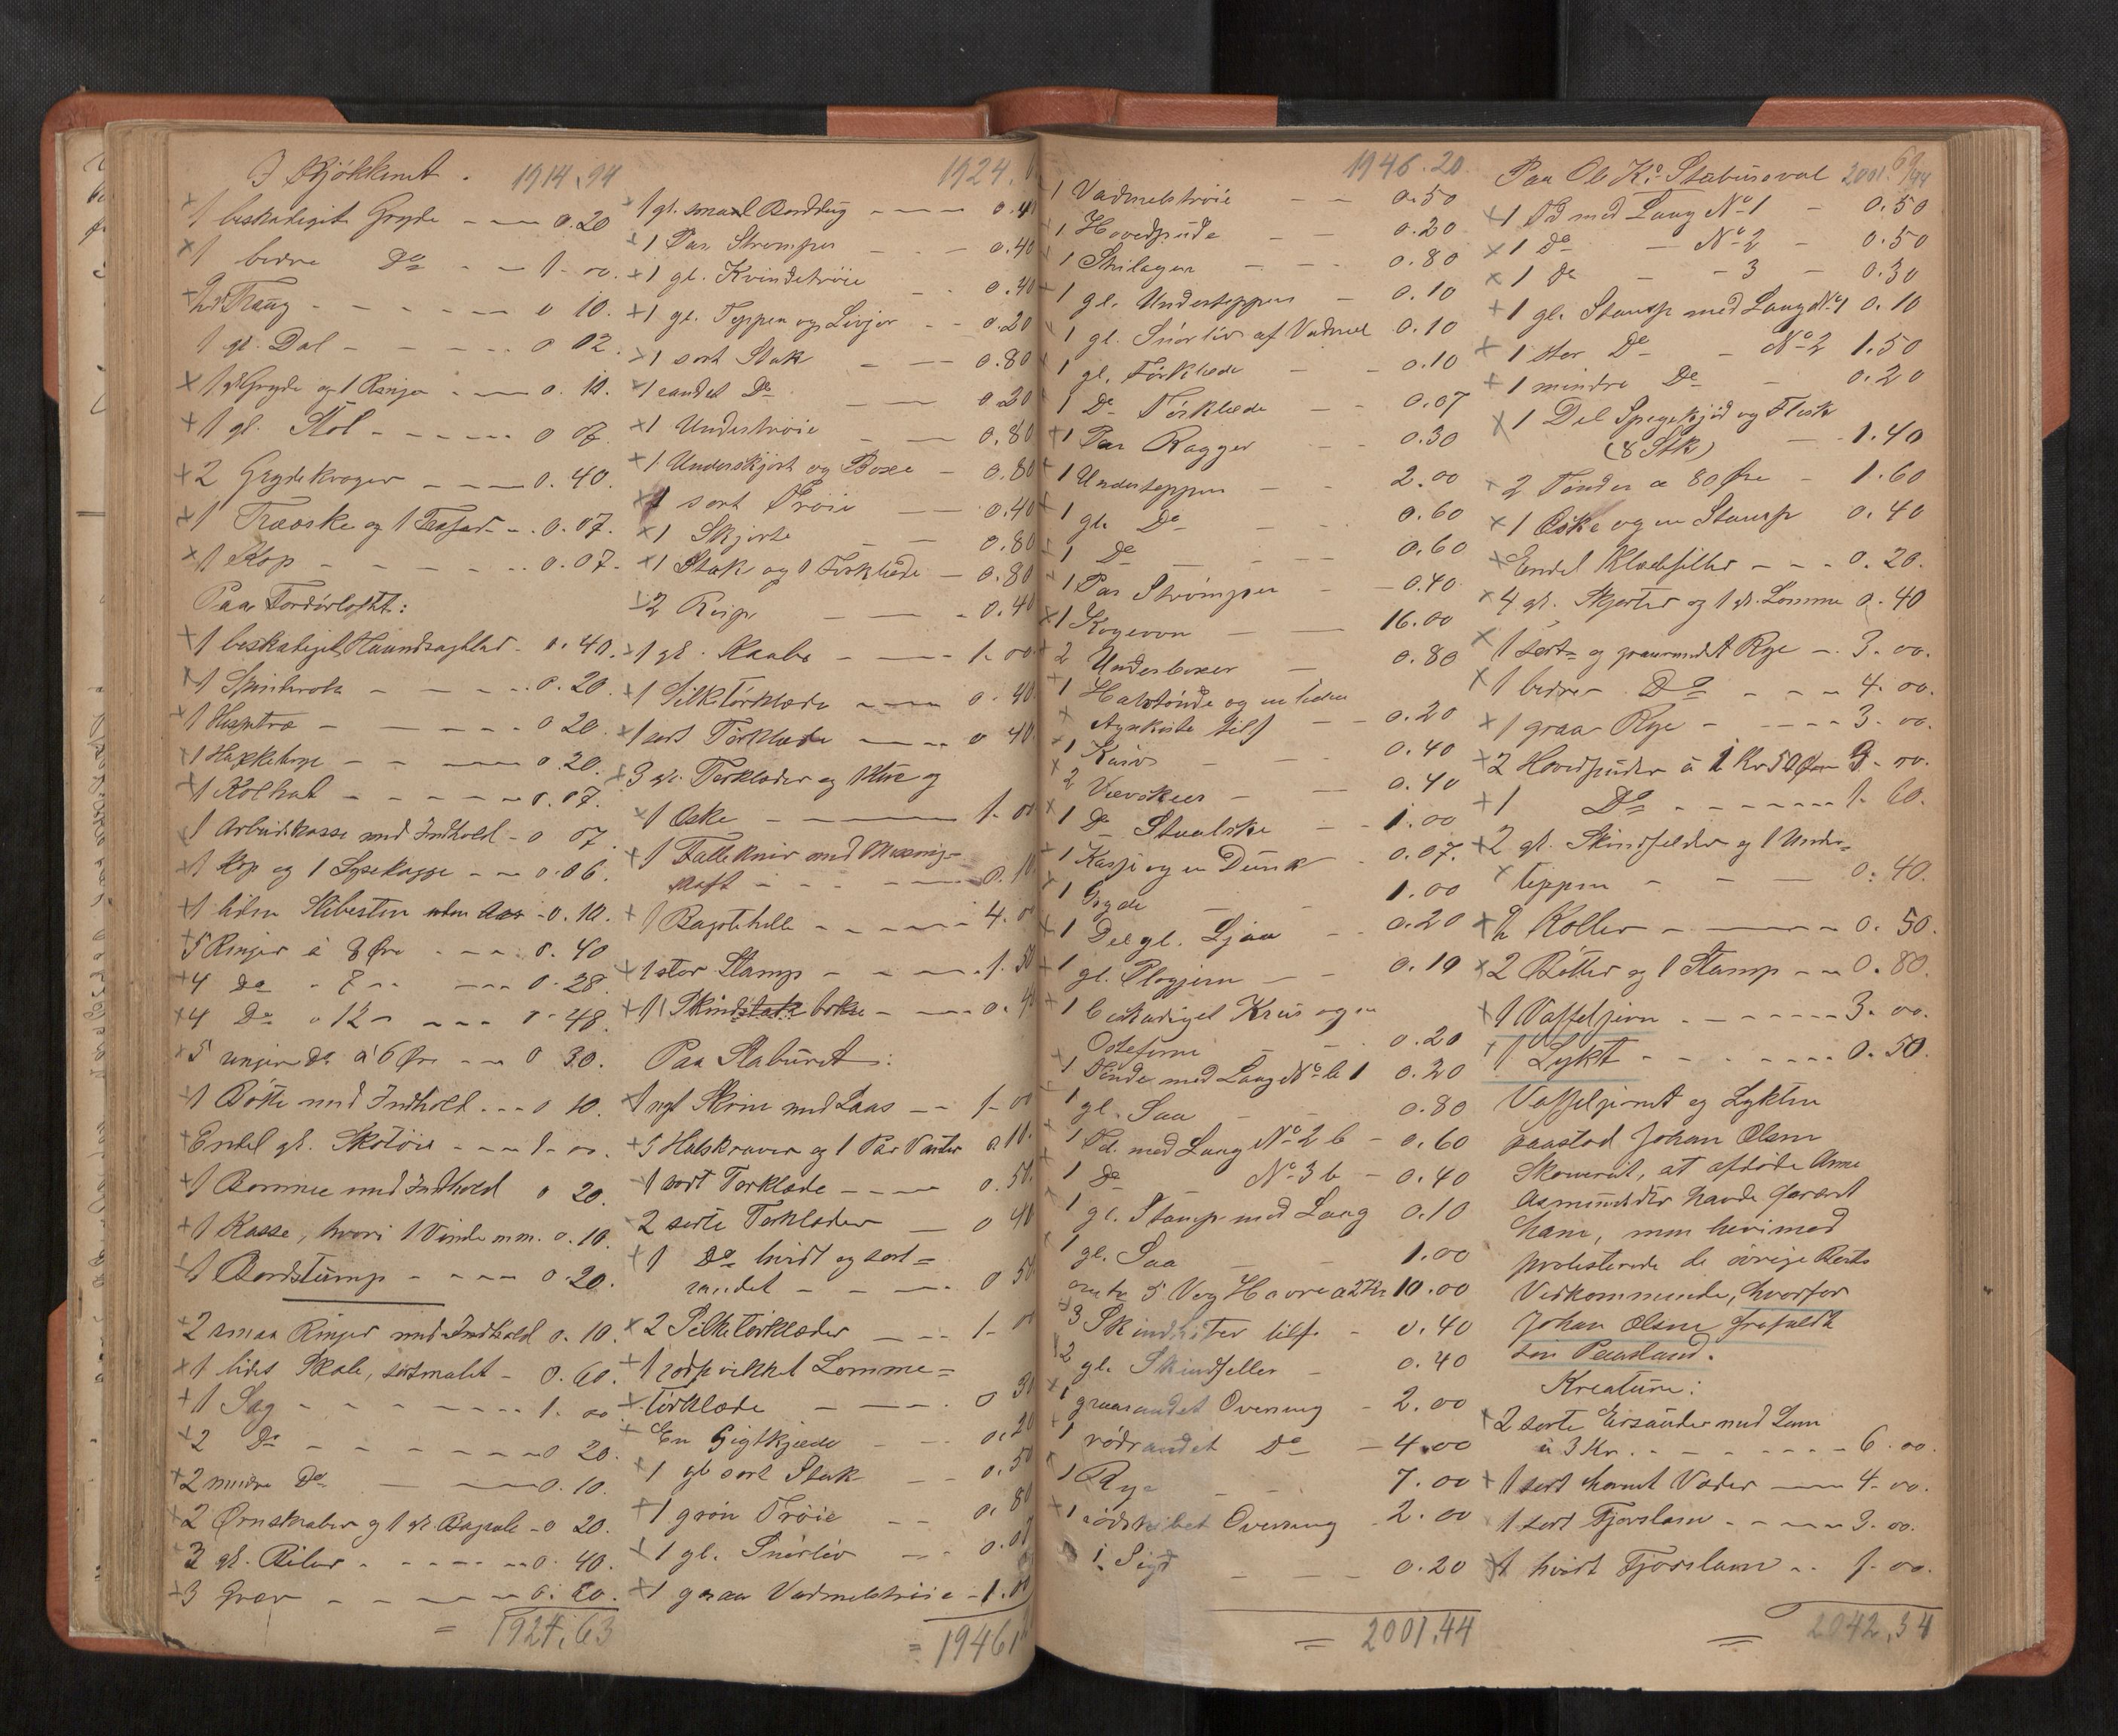 I Kjøkkenet.
1914.94
× 1 beskadiget Gryde - - 0.20
× 1 bedre Do - - 1.00.
Traug - - - 0 10.
1 gl. Dal - - - 0 02.
× 1 gl Gryde og 1 Ringe - - 0. 12.
+ 1 gl. Stol - - - 0 07.
+ 2 Grydekroger - - 0.40.
+ 1 Træøske og 1 - - 0.07.
× 1 Kop - - - 0.07.
Paa Fordørloftet:
× 1 beskadiget Haandsagblad - 0.40.
1 Spinderok - - - 0.20.
1 Hesptræ - - - 0 20.
1 Hakkekniv - - - 0.20.
1 Kolhat - - - 0.07.
1 Arbeidskasse med Indhold - 0 07.
1 Kop og 1 Lysekagge - - 0.06.
+ 1 liden Slibesten uden Aas - 0.10.
+ 5 Ringer à 8 Øre - - - 0.40
+ 4 do - 7 - - - 0.28.
+ 4 Do - 12 - - - 0.48.
5 ringere do à 6 Øre - - 0 30.
1 Bøtte med Indhold - - 0 10.
+ Endel gl. Skotøie - - 1.00.
+ 1 Bomme med Indhold 0 20.
+ 1 Kasse, hvori 1 Vinde m.m. 0.10.
1 Bordstump - - - 0.20.
+ 2 smaa Ringer med Indhold 0.10.
× 1 lides Skaal, sortmalet - 0.60.
+ 1 Sag - - - 1.00
+ 2 Do - - - 0 20.
+ 2 mindre Do - - 0.10.
+ 2 Ørnskraber og 1 gl. Bagpale - 0 20.
3 gl. Biler - - - 0. 40.
+ 3 Grev - - - 0.20.
= 1924.63
1924.
1 gl. smaal Borddug - - 0.4
+ 1 Par Strømper - - 0.40
+ 1 gl. Kvindetrøie - - 0.40
+ 1 gl. Teppen og Livjor - - 0.20
1 sort Stak - - 0.80
× 1 randet Do - - 0.20
× 1 Undertrøie - - 0.80
+ 1 Underskjort og Boxe - 0.80
1 sort Trøie - - 0.40
× 1 Skjorte - - 0.80
× 1 Stak og 1 Forklæde - 0.80
2 Rusp - - 0.40
1 gl. Kaabe - - 1.00
+ 1 Silktørklæde - - 0.40
1 sort Tørklæde - - 0 40
+ 3 gl. Tørklæder og Hue og
× 1 Øske - - 1.00
+ 1 Fallekniv med Messing-
skaft - - - 0.10
+ 1 Bagstehelle - - - 4.0
+ 1 stor Stamp - - - 1.50
+ 1 Skindstak bokse - - 0.4
Paa Staburet:
1 nyt Skrin med Laas - - 1.00
+ 5 Halskraver og 1 Par Vanter 0.10.
1 sort Tørklæde - - - 0.50.
2 sorte Tørklæder - 0 40
+ 1 Do hvidt og sort-
randet - - - 0 50
× 2 Silketørklæder - - 1.00
+ 1 rødprikket Lomme-
× tørklæde - - - 0 30
+ En Gigtkjæde - - 0.20
+ 1 gl sort Stak - 0.50
+ 1 grøn Trøie - - 0.80
+ 1 gl. Snørliv - - 0.07
+ 1 graa Vadmelstrøie - 1.00
= 1946.
1946.20.
1 Vadmelstrøie - - 0.50
1 Hovedpude - - 0.20
1 Strilagen - - - 0.80
1 gl. Underteppen - 0.10
1 gl. Snørliv af Vadmel 0.10
1 gl. Forklæde - - 0.10
1 Do Forklæde - - 0.07
+ 1 Par Ragger - - 0.30
1 Underteppen - - 2.00
1 gl. Do - - 0.60
1 Do - - - 0.60
+ 1 Par Strømper - - 0.40
× 1 Kogeovn - - 16.00
+ 2 Underboxer - 0.80
1 Halvtønde og en liden
Agnkiste tils - - 0.20
1 Kurv - - 0.40
× 2 Vævskeer - - 0.40
× 1 Do Staalske - - 1.00
1 Kaffe og en Dunk - 0.07.
1 Gryde - - 1.00
1 Del gl. Ljaa - - 0.20
1 gl. Plogjern - - 0.19
+ 1 beskadiget Krus og en
Osteform - - - 0.20
1 Tønde med Laag No b 1 0.20
1 gl. Saa - - 0.80
1 Do. med Laag No 2 b - 0.60
1 Do - No 3 b - 0.40
1 gl. Stamp med Laag 0.10
1 gl. Saa - - 1.00
5 Vog Havre a 2 Kr 10.00
3 Skindhiter tils. - 0.40
2 gl. Skindfeller - 0.40
1 graarandet Overnsmg - 2.00
1 rødrandet Do - 4.00
1 Rye - - 7.00
1 rødstribet Overnsmg 2.00
1 Sigt - - - 0.20
= 2001.44
Paa Ole Ks Stabursoval 2001.44
+ 1 Bd med Laag No 1 - 0.50
× 1 Do - No 2 - 0.50
× 1 Do - - 3 - 0.30
+ 1 gl. Stamp med Laag No 1 0.10
+ 1 stor Do - No 2 1.50
+ 1 mindre Do - 0.20
× 1 Del Spegekjød og Flesk
(8 Stk) - - 1.40
× 2 Tønder a 80 Øre - 1.60
× 1 Øske og en Stamp 0.40
× Endel Klædefiller - - - 0.20.
× 4 gl. Skjorter og 1 gl. Lomme 0.40
× 1 sort- og graarandet Rye - 3.00.
× 1 bedre - Do - - - 4.00.
× 1 graa Rye - - - 3.00.
× 2 Hovedpuder à 1 Kr 50 Øre 3.00.
+ 1 Do - - - 1.60.
+ 2 gl. Skindfelder og 1 Under-
× teppen - - - 0.40.
+ 2 Koller - - - 0.50.
× 2 Bøtter og 1 Stamp - - 0.80.
× 1 Vaffeljern - - - 3.00.
1 Lykt - - - 0.50.
Vaffeljernet og Lykten
paastod Johan Olsen
Skomerait, at afdøde Anne
Aasmundsdtr havde foræret
ham, men herimod
protesterede de øvrige Boets
Vedkommende, hvorfor
Johan Olsen frafaldt
sin Paastand.
Kreature:
2 sorte Eirsauder med Lam
à 3 Kr. - - - 6.00.
+ 1 sort hornet Væder - 4.00.
1 sort Fjorslam - - - 3.00.
1 hvidt Fjorslam - - 1.00.
= 2042.34